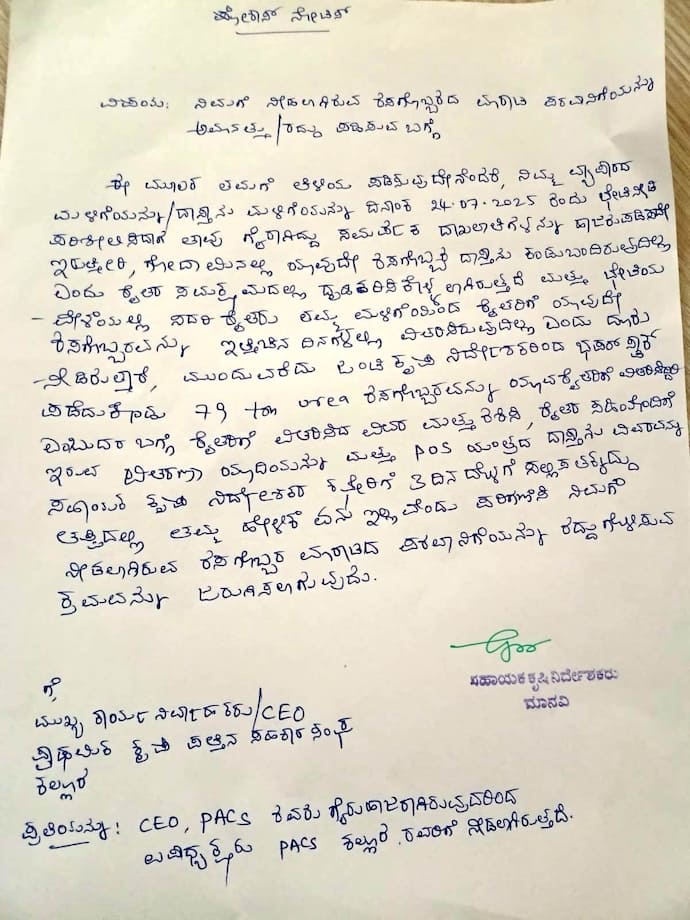 ಶೋಕಾಸ್ ನೋಟಿಸ್
ವಿಷಯ: ನಿಮಗೆ ನೀಡಲಾಗಿರುವ ರಸಗೊಬ್ಬರದ ಮಾರಾಟ ಪರವಾನಿಗೆಯನ್ನು
ಅಮಾನತ್ತು/ರದ್ದು ಪಡಿಸುವ ಬಗ್ಗೆ
ಈ ಮೂಲಕ ತಮಗೆ ತಿಳಿಯ ಪಡಿಸುವುದೇನೆಂದರೆ, ನಿಮ್ಮ ವ್ಯಾಪಾರದ
ಮಳಿಗೆಯನ್ನು/ದಾಸ್ತಾನು ಮಳಿಗೆಯನ್ನು ದಿನಾಂಕ 24.07.2025 ರಂದು ಭೇಟಿನೀಡಿ
ಪರಿಶೀಲಿಸಿದಾಗ ತಾವು ಗೈರಾಗಿದ್ದು ಸಮರ್ಪಕ ದಾಖಲಾತಿಗಳನ್ನು ಹಾಜರುಪಡಿಸದೇ
ಇರುತ್ತೀರಿ, ಗೋದಾಮಿನಲ್ಲಿ ಯಾವುದೇ ರಸಗೊಬ್ಬರ ದಾಸ್ತಾನು ಕಂಡುಬಂದಿರುವುದಿಲ್ಲ
ಎಂದು ರೈತರ ಸಮಕ್ಷಮದಲ್ಲಿ ದೃಢಪರಿಸಿಕೊಳ್ಳಲಾಗಿರುತ್ತದೆ ಮತ್ತು ಭೇಟಿಯ
ವೇಳೆಯಲ್ಲಿ ಸದರಿ ರೈತರು ತಮ್ಮ ಮಳಿಗೆಯಿಂದ ರೈತರಿಗೆ ಯಾವುದೇ
ರಸಗೊಬ್ಬರವನ್ನು ಇತ್ತೀಚಿನ ದಿನಗಳಲ್ಲಿ ವಿತರಿಸಿರುವುದಿಲ್ಲ ಎಂದು ದೂರು
ನೀಡಿರುತ್ತಾರೆ, ಮುಂದುವರೆದು ಜಂಟಿ ಕೃಷಿ ನಿರ್ದೇಶಕರಿಂದ
ಪಡೆದುಕೊಂಡು 79 ton urea ರಸಗೊಬ್ಬರವನ್ನು ಯಾವರೈತರಿಗೆ ವಿತರಿಸಿದ್ದೀರಿ
ಎಂಬುದರ ಬಗ್ಗೆ ರೈತರಿಗೆ ವಿತರಿಸಿದ ವಿವರ ಮತ್ತು ರಶೀದಿ, ರೈತರ ಸಹಿಯೊಂದಿಗೆ
ಇರುವ ವಿತರಣಾ ಯಾದಿಯನ್ನು ಮತ್ತು POS ಯಂತ್ರದ ದಾಸ್ತಾನು ವಿವರವನ್ನು
ಸಹಾಯಕ ಕೃಷಿ ನಿರ್ದೇಶಕರ ಕಛೇರಿಗೆ 3 ದಿನದೊಳಗೆ ಸಲ್ಲಿಸತಕ್ಕದ್ದು
ತಪ್ಪಿದಲ್ಲಿ ತಮ್ಮ ಹೇಳಿಕೆ ಏನು ಇಲ್ಲವೆಂದು ಪರಿಗಣಿಸಿ ನಿಮಗೆ
ನೀಡಲಾಗಿರುವ ರಸಗೊಬ್ಬರ ಮಾರಾಟದ ಪರವಾನಿಗೆಯನ್ನು ರದ್ದುಗೊಳಿಸುವ
ಕ್ರಮವನ್ನು ಜರುಗಿಸಲಾಗುವುದು.
ಸಹಾಯಕ ಕೃಷಿ ನಿರ್ದೇಶಕರು
ಮಾನವಿ
ಗೆ,
ಮುಖ್ಯ ಕಾರ್ಯ ನಿರ್ವಾಹಕರು/CEO
ಪ್ರಾಥಮಿಕ ಕೃಷಿ ಪತ್ತಿನ ಸಹಕಾರ ಸಂಘ
ಕಲ್ಲೂರ
ಪ್ರತಿಯನ್ನು: CEO, PACS ರವರು ಗೈರುಹಾಜರಾಗಿರುವುದರಿಂದ
ಉಪಾಧ್ಯಕ್ಷರು PACS ಕಲ್ಲೂರ ರವರಿಗೆ ನೀಡಲಾಗಿರುತ್ತದೆ.